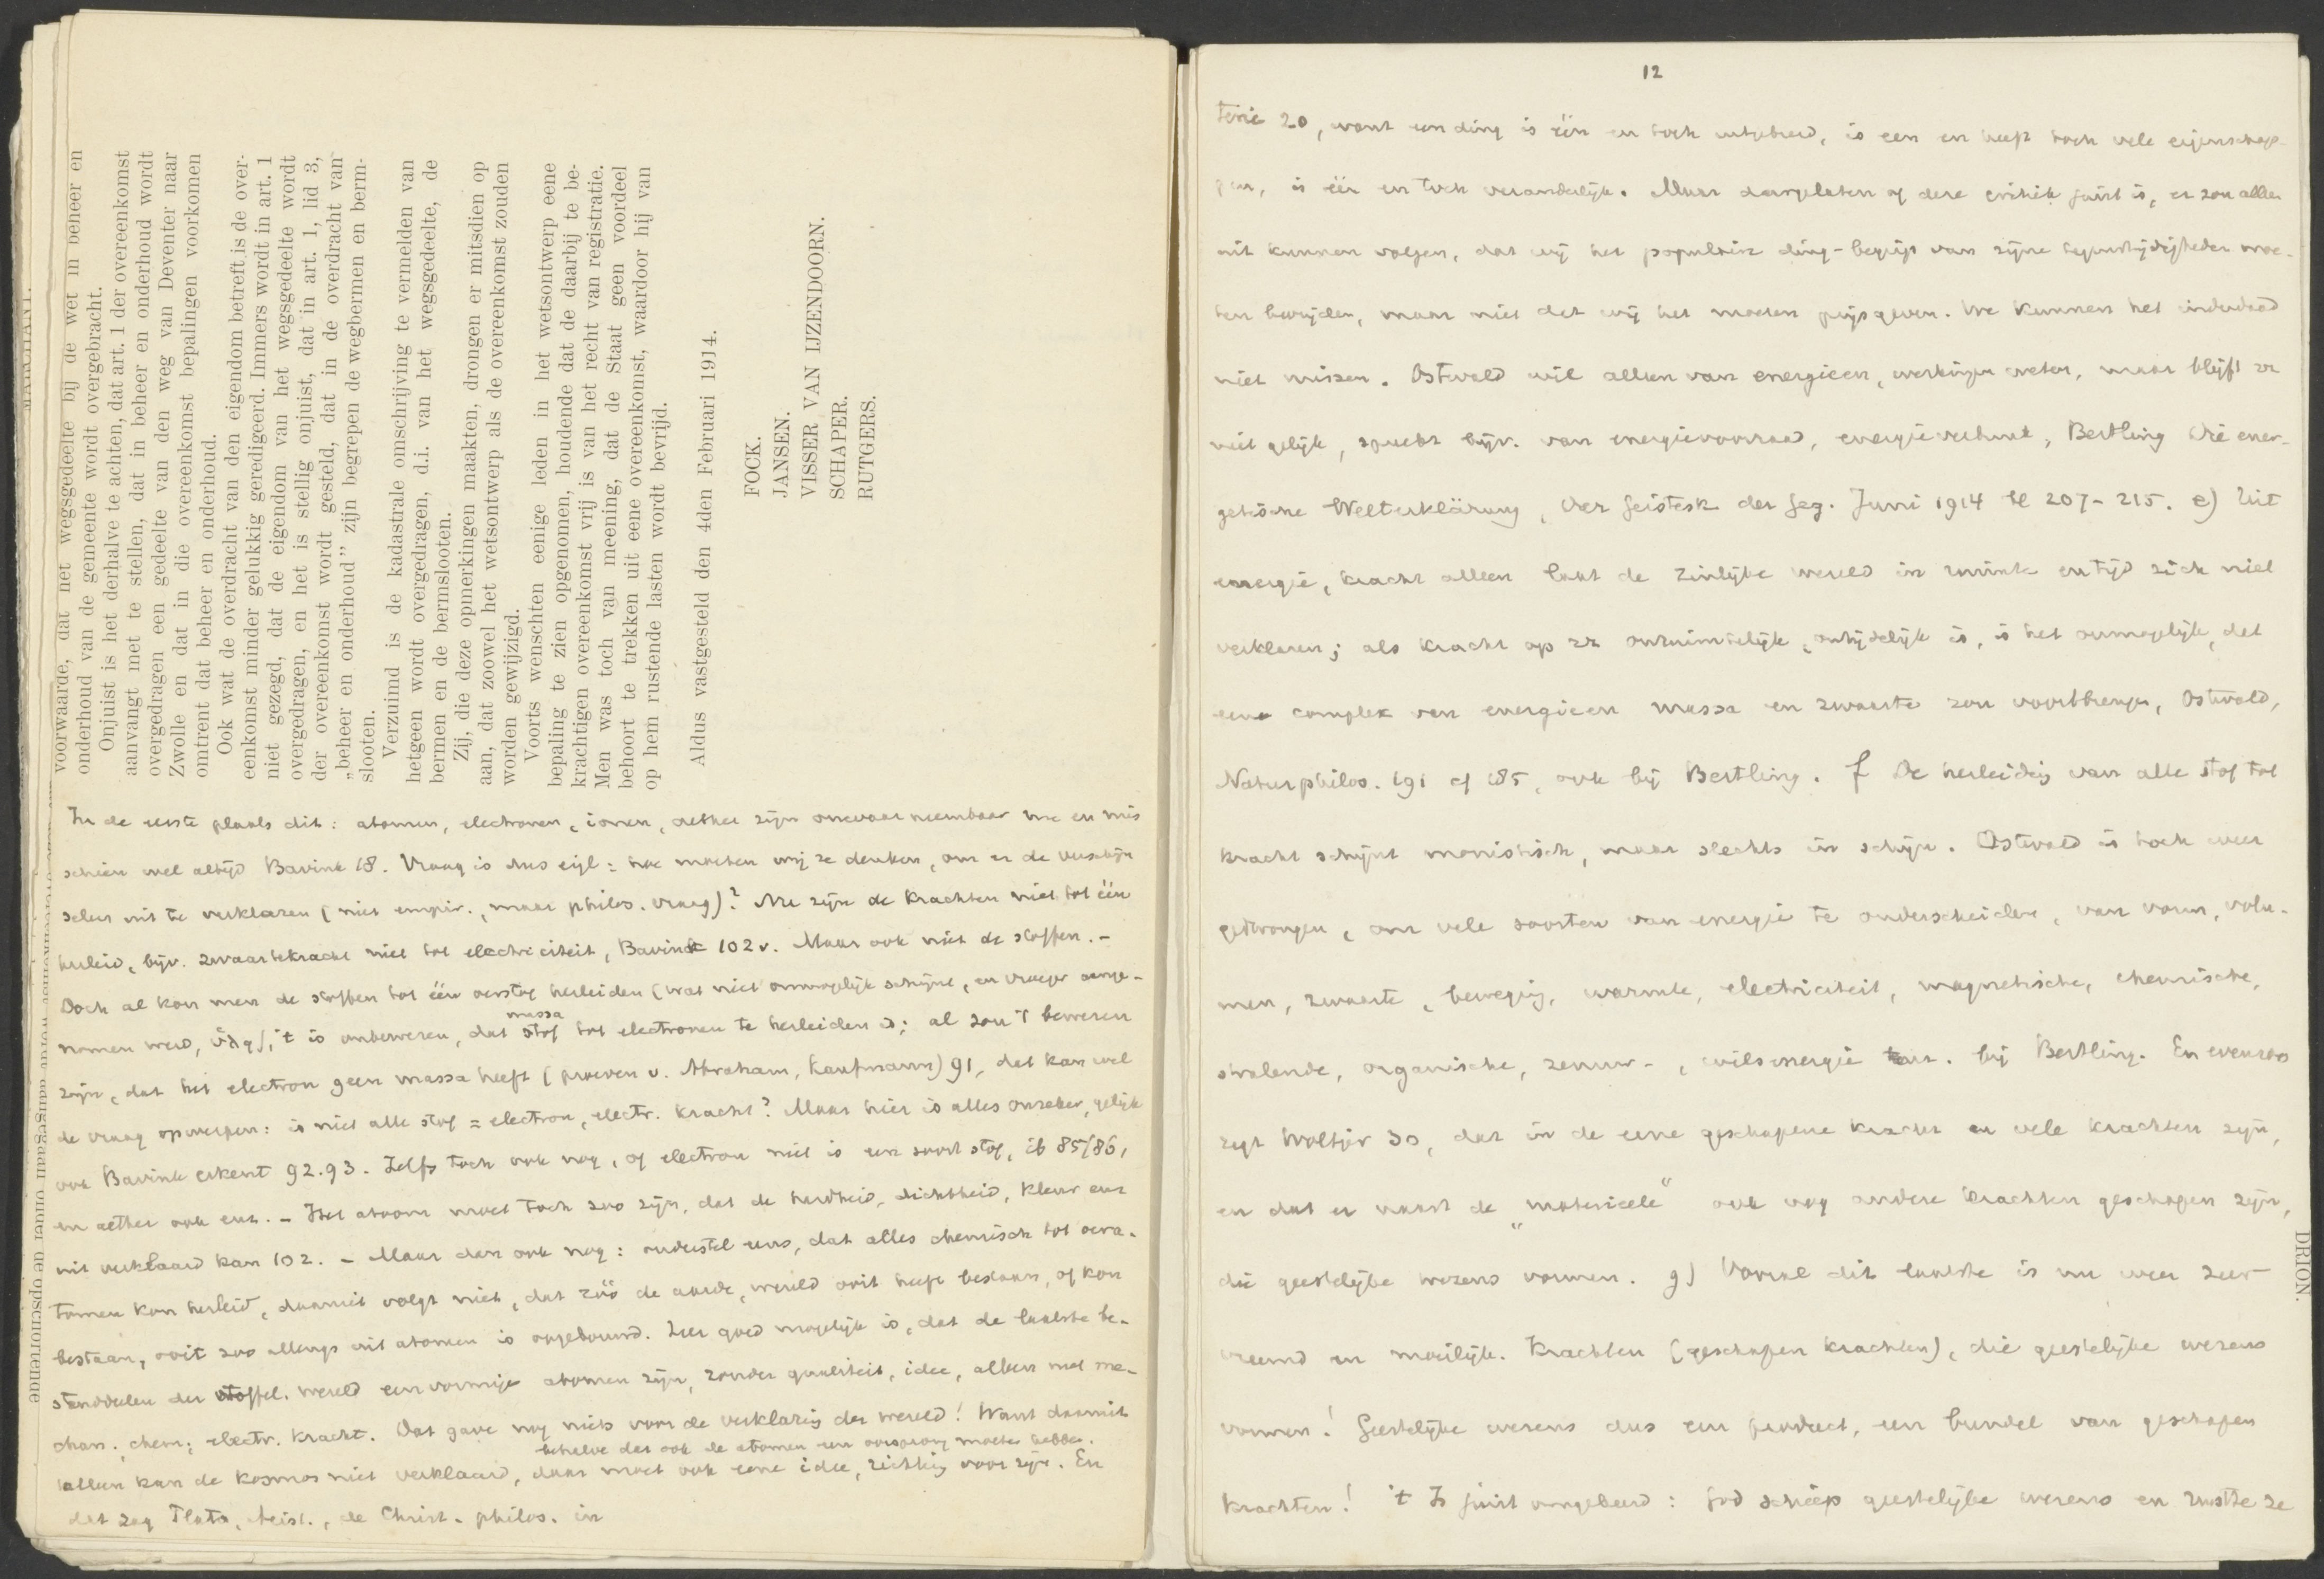 voorwaarde, dat het wegsgedeelte bij de wet in beheer en
onderhoud van de gemeente wordt overgebracht.
Onjuist is het derhalve te achten, dat art. 1 der overeenkomst
aanvangt met te stellen, dat in beheer en onderhoud wordt
overgedragen een gedeelte van den weg van Deventer naar
Zwolle en dat in die overeenkomst bepalingen voorkomen
omtrent dat beheer en onderhoud.
Ook wat de overdracht van den eigendom betreft is de over-
eenkomst minder gelukkig geredigeerd. Immers wordt in art. 1
niet gezegd, dat de eigendom van het wegsgedeelte wordt
overgedragen, en het is stellig onjuist, dat in art. 1, lid 3,
der overeenkomst wordt gesteld, dat in de overdracht van
„beheer en onderhoud” zijn begrepen de wegbermen en berm-
slooten.
Verzuimd is de kadastrale omschrijving te vermelden van
hetgeen wordt overgedragen, d.i. van het wegsgedeelte, de
bermen en de bermslooten.
Zij, die deze opmerkingen maakten, drongen er mitsdien op
aan, dat zoowel het wetsontwerp als de overeenkomst zouden
worden gewijzigd.
Voorts wenschten eenige leden in het wetsontwerp eene
bepaling te zien opgenomen, houdende dat de daarbij te be-
krachtigen overeenkomst vrij is van het recht van registratie.
Men was toch van meening, dat de Staat geen voordeel
behoort te trekken uit eene overeenkomst, waardoor hij van
op hem rustende lasten wordt bevrijd.
Aldus vastgesteld den 4den Februari 1914.
FOCK.
JANSEN.
VISSER VAN IJZENDOORN.
SCHAPER.
RUTGERS.
In de eerste plaats dit: atomen, electronen, ionen, aether zijn onwaarneembaar nu en mis
schien wel altijd Bavink 18. Vraag is dus eigl: hoe moeten wij ze denken, om er de verschijn
selen uit te verklaren (niet empir., maar philos. vraag)? Nu zijn de krachten niet tot één
herleid, bijv. zwaartekracht niet tot electriciteit, Bavink 102v. Maar ook niet de stoffen. -
Doch al kon men de stoffen tot één oerstof herleiden (wat niet onmogelijk schijnt, en vroeger aange-
nomen werd, 't is onbewezen, dat stof massa tot electronen te herleiden is; al zou 't bewezen
zijn, dat het electron geen massa heeft (proeven v. Abraham, Kaufmann) 91, dat kan wel
de vraag opwerpen: is niet alle stof = electron, electr. kracht? Maar hier is alles onzeker, gelijk
ook Bavink erkent 92.93. Zelfs toch ook nog, of electron niet is een soort stof, ib 85/86,
en aether ook enz. - Het atoom moet toch zoo zijn, dat de hardheid, dichtheid, kleur enz
uit verklaard kan 102. - Maar dan ook nog: onderstel eens, dat alles chemisch tot oera-
tomen kon herleid, daaruit volgt niet, dat zóó de aarde, wereld ooit heeft bestaan, of kon
bestaan, ooit zoo allengs uit atomen is opgebouwd. Zeer goed mogelijk is, dat de laatste be-
standdeelen der stoffel. wereld eenvormige atomen zijn, zonder qualiteit, idee, alleen met me-
chan. chem; electr. kracht. Dat gave nog niets voor de verklaring der wereld! Want daaruit
behalve dat ook de atomen een oorsprong moeten hebben.
alleen kan de kosmos niet verklaard, daar moet ook eene idee, richting voor zijn. En
dat zag Plato, Arist., de Christ. philos. in
12
terie 20, want een ding is één en toch uitgebreid, is een en heeft toch vele eigenschap-
pen, is één en toch veranderlijk. Maar daargelaten of deze critiek juist is, er zou alleen
uit kunnen volgen, dat wij het populaire ding-begrip van zijne tegenstrijdigheden moe-
ten bevrijden, maar niet dat wij het moeten prijsgeven. We kunnen het inderdaad
niet missen. Ostwald wil alleen van energieen, werkingen weten, maar blijft zr
niet gelijk, spreekt bijv. van energievoorraad, energieverbruik, Bertling Die ener-
getische Welterklärung, Der Geistesk. der Geg. Juni 1914 bl 207-215. e) Uit
energie, kracht alleen laat de zinlijke wereld in ruimte en tijd zich niet
verklaren; als kracht op zr onruimtelijk, ontijdelijk is, is het onmogelijk, dat
een complex van energieen massa en zwaarte zou voortbrengen, Ostwald,
Naturphilos. 191 cf 185, ook bij Bertling. f De herleiding van alle stof tot
kracht schijnt monistisch, maar slechts in schijn. Ostwald is toch weer
gedwongen, om vele soorten van energie te onderscheiden, van vorm, volu-
men, zwaarte, beweging, warmte, electriciteit, magnetische, chemische,
stralende, organische, zenuw-, wilsenergie enz. bij Bertling. En evenzoo
zegt Woltjer 30, dat in de eene geschapene kracht er vele krachten zijn,
en dat er naast de „materieele” ook nog andere krachten geschapen zijn,
die geestelijke wezens vormen. g) Vooral dit laatste is nu weer zeer
vreemd en moeilijk. Krachten (geschapen krachten), die geestelijke wezens
vormen! Geestelijke wezens dus een product, een bundel van geschapen
krachten! 't Is juist omgekeerd: God schiep geestelijke wezens en rustte ze
DRION.